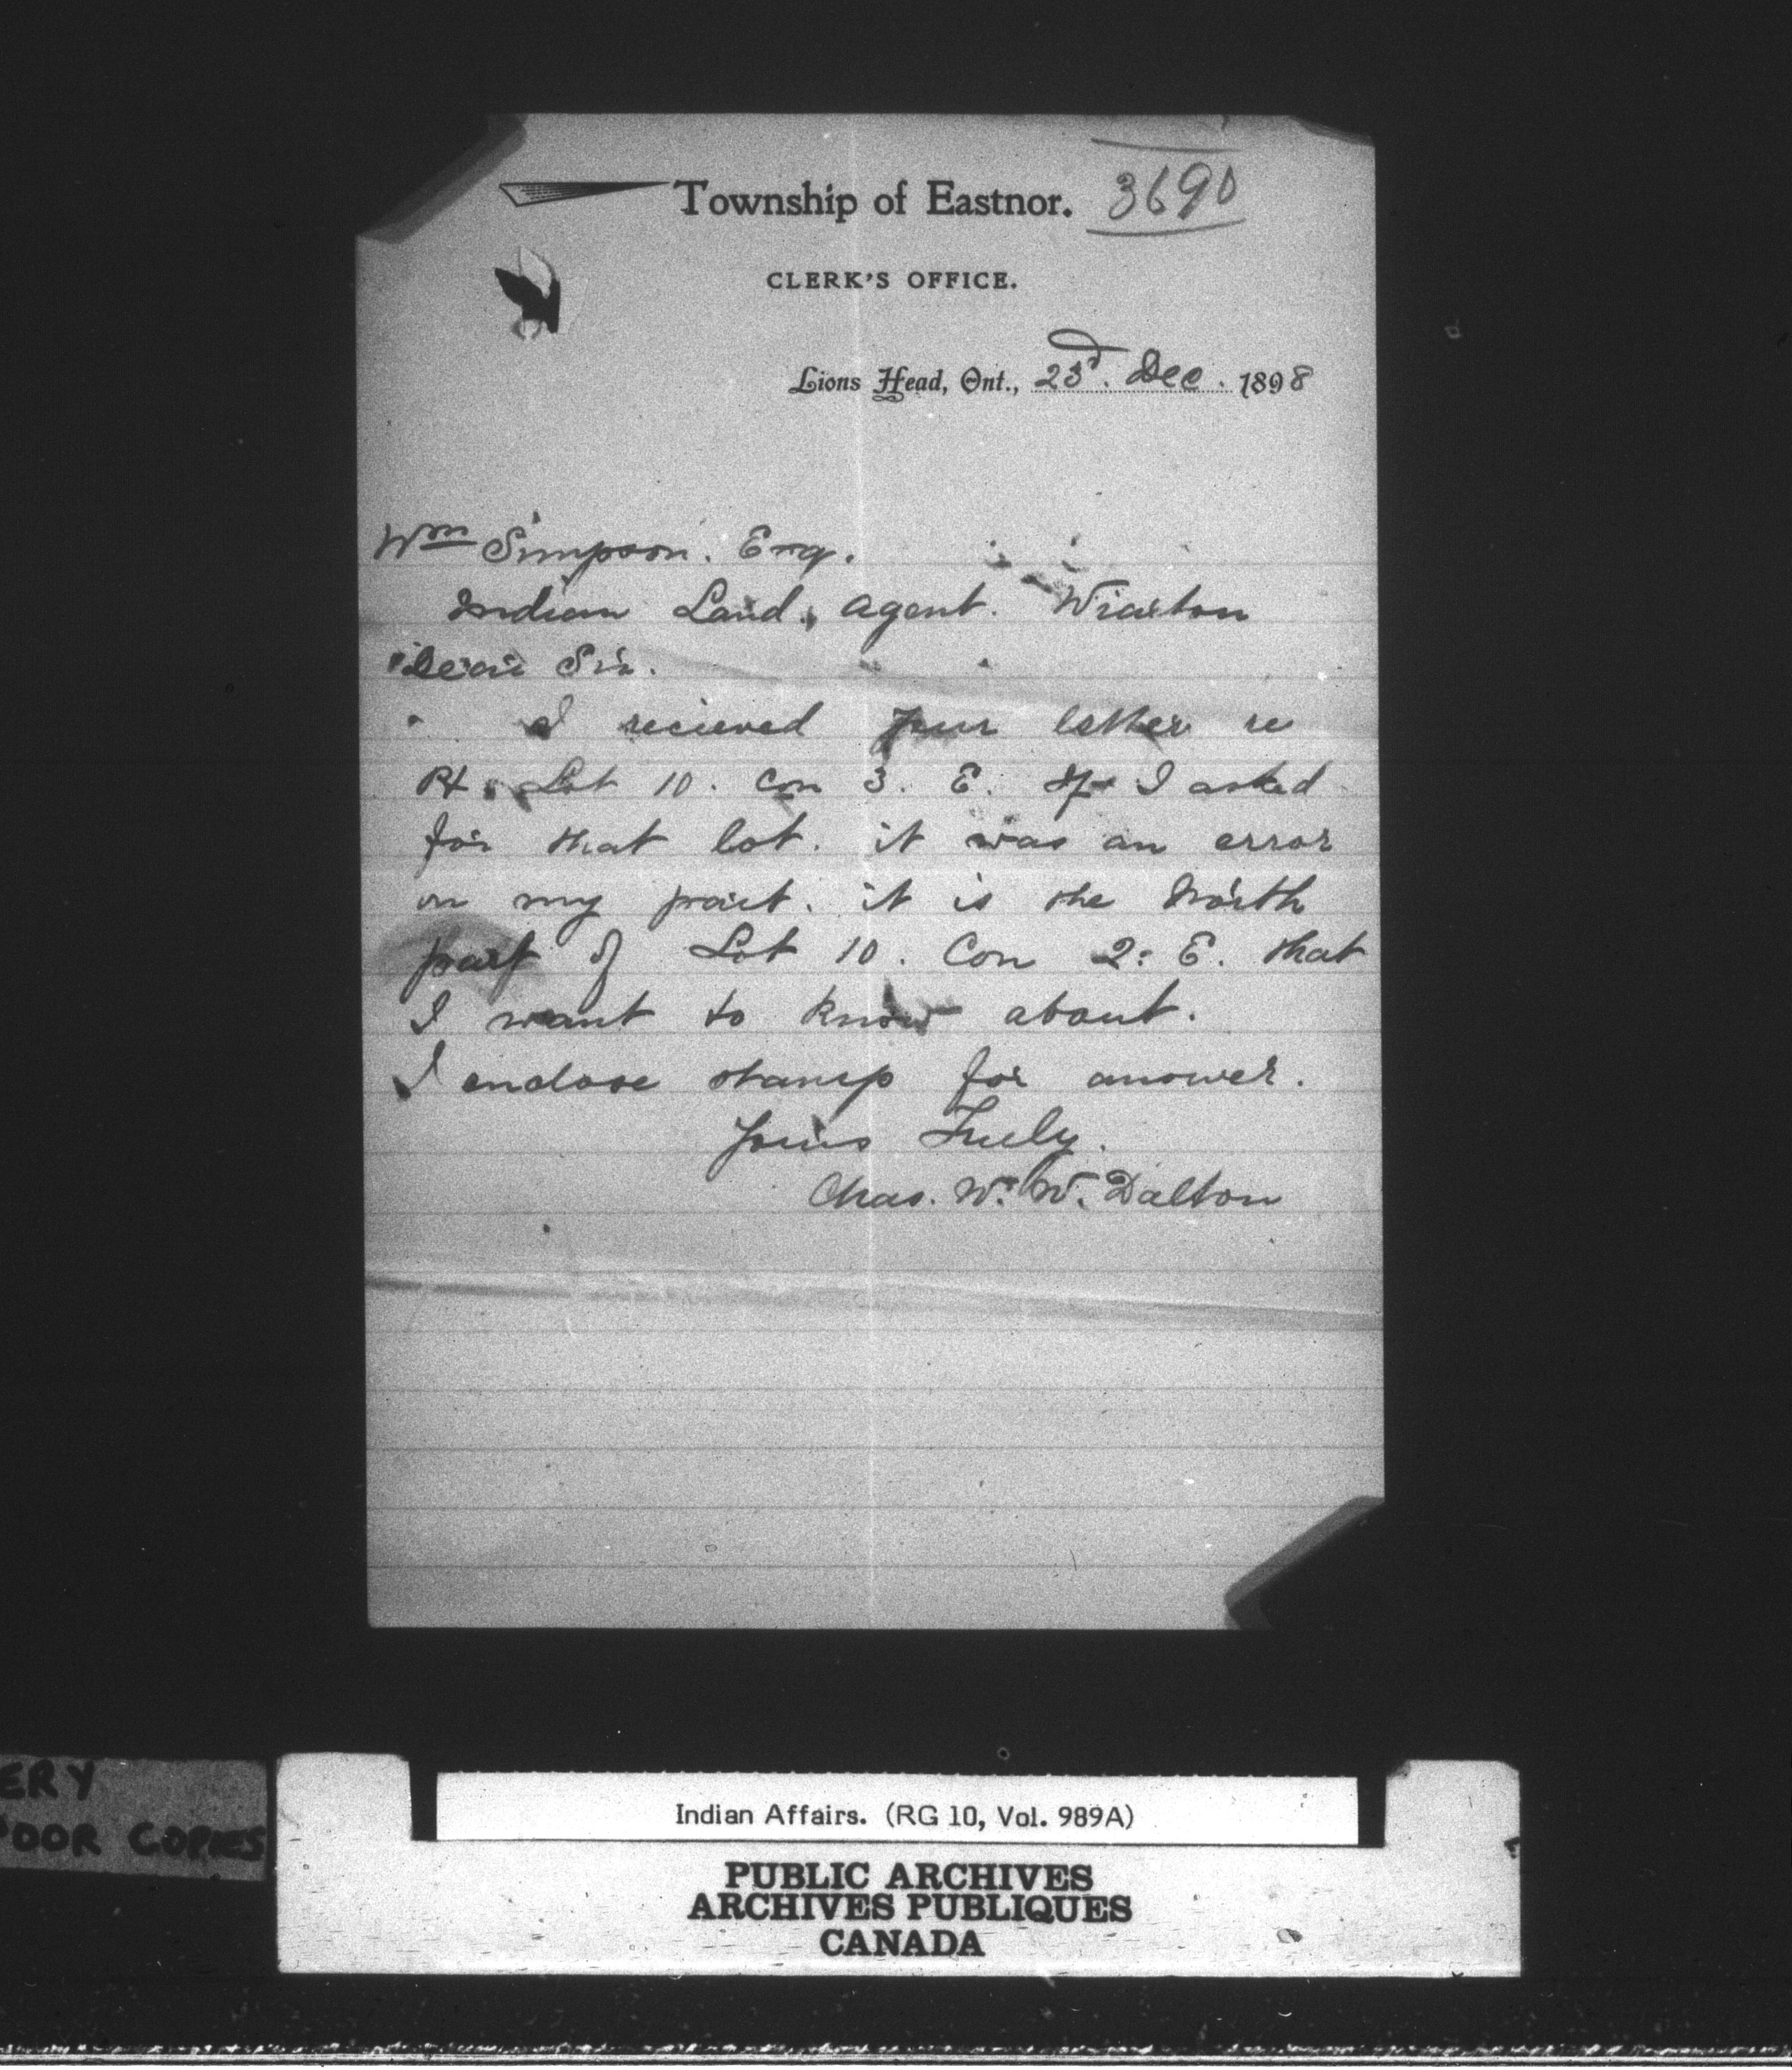 Township of Eastnor. 3690
CLERK'S OFFICE.
Lions Head, Ont., 23d. Dec. 1898
Wm Simpson. Esq.
Indian Land, Agent. Wiarton
Dear Sir.
I recieved your letter re
Pt. Lot 10. Con 3. E. If I asked
for that lot. it was an error
on my part. it is the North
part of Lot 10. Con 2: E. that
I want to know about.
I enclose stamp for answer.
Yours Truly.
Chas. W. W. Dalton
ERY
POOR COPIES
Indian Affairs. (RG 10, Vol. 989A)
PUBLIC ARCHIVES
ARCHIVES PUBLIQUES
CANADA